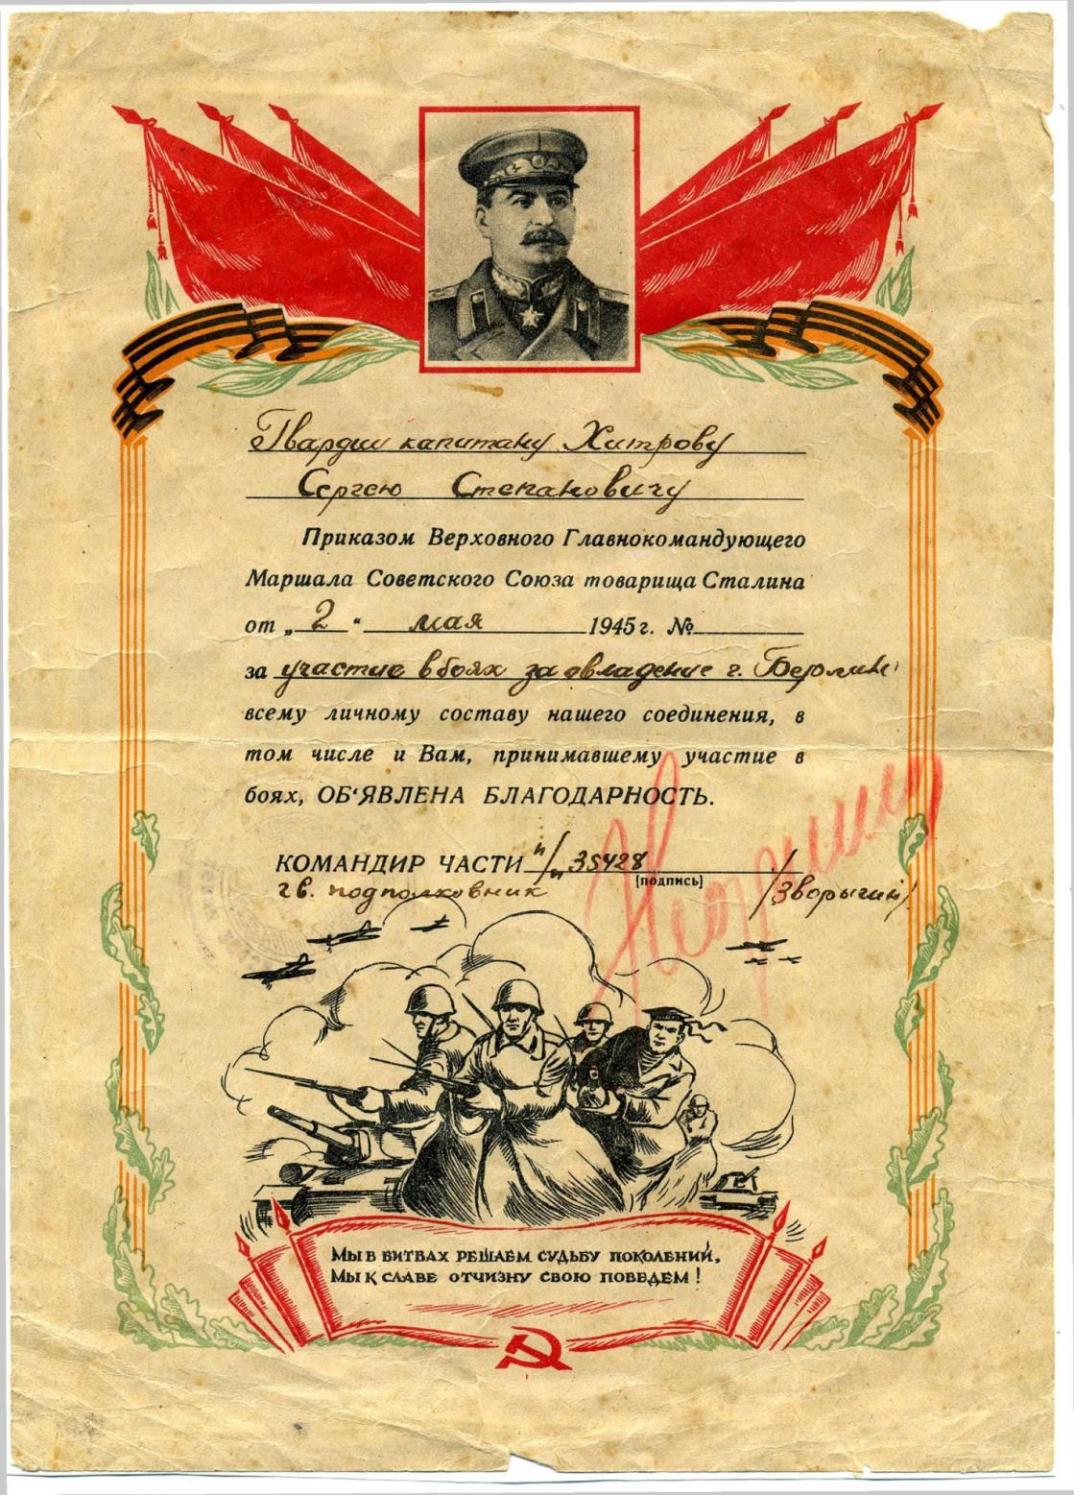 Гвардии капитану Хитрову
Сергею Степановичу
Приказом Верховного Главнокомандующего
Маршала Советского Союза товарища Сталина
от „2“ мая 1945 г. №
за участие в боях за овладение г. Берлин
всему личному составу нашего соединения, в
том числе и Вам, принимавшему участие в
боях, ОБ'ЯВЛЕНА БЛАГОДАРНОСТЬ.
КОМАНДИР ЧАСТИ п/п 35428
[подпись]
гв. подполковник /Зворыгин/
МЫ В БИТВАХ РЕШАЕМ СУДЬБУ ПОКОЛЕНИЙ,
МЫ К СЛАВЕ ОТЧИЗНУ СВОЮ ПОВЕДЕМ!